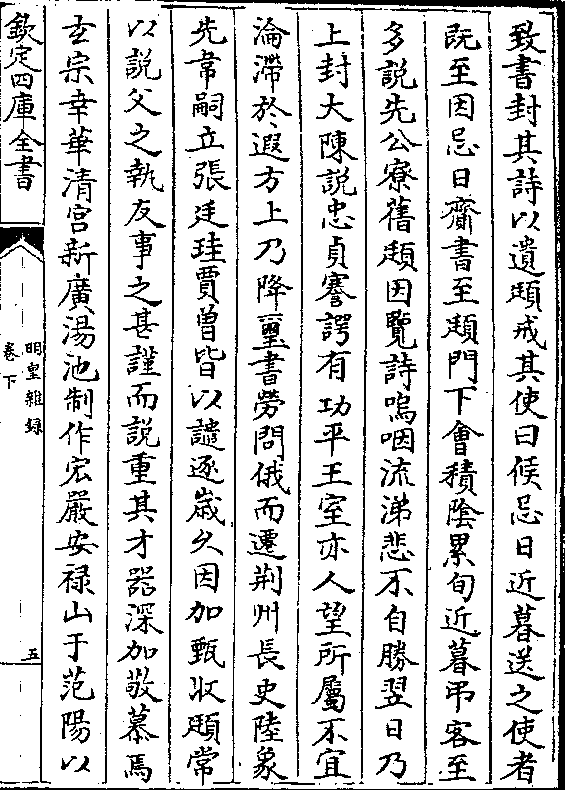 致書封其詩以遺頲戒其使曰候忌日近暮送之使者
既至因忌日齎書至頲門下會積陰累旬近暮弔客至
多説先公寮舊頲因覽詩嗚咽流涕悲不自勝翌日乃
上封大陳説忠貞謇諤有功平王室亦人望所屬不宜
淪滯於遐方上乃降璽書勞問俄而遷荆州長史陸象
先韋嗣立張廷珪賈曾皆以譴逐嵗久因加甄收頲常
以説父之執友事之甚謹而説重其才器深加敬慕焉
𤣥宗幸華清宫新廣湯池制作宏嚴安禄山于范陽以
欽定四庫全書
明皇雜錄
卷下
五